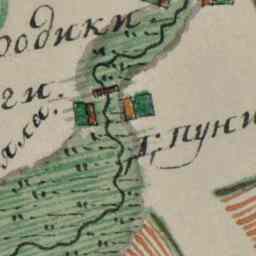 родики
ги.
лла.
Д: пуни